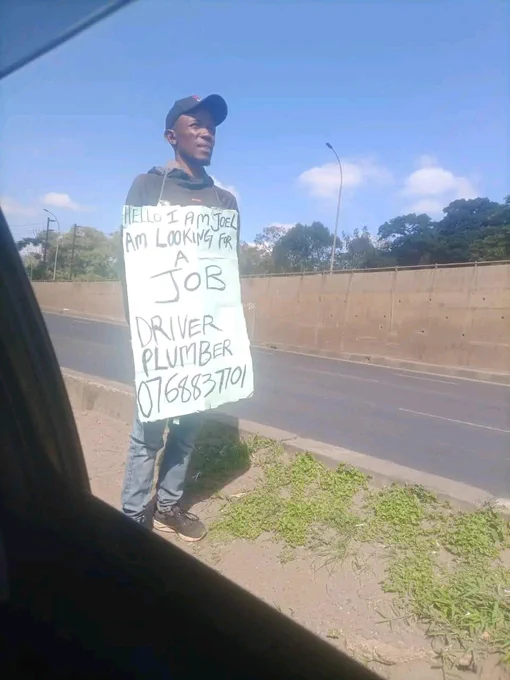 HELLO I AM JOEL
AM LOOKING FOR
A
JOB
DRIVER
PLUMBER
0768837701